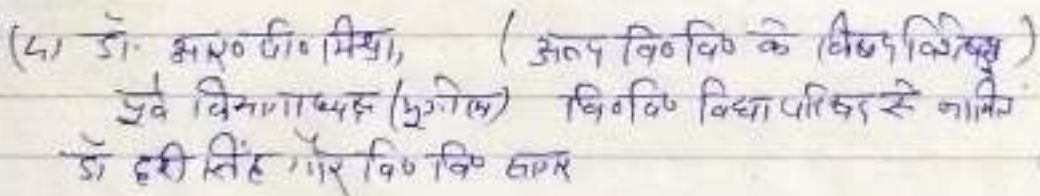 (4) डॉ. आर० पी० मिश्रा, (अन्य वि० वि० के विषय विशेषज्ञ)
पूर्व विभागाध्यक्ष (भूगोल) वि० वि० विद्या परिषद से नामित
डॉ हरी सिंह गौर वि० वि० सागर